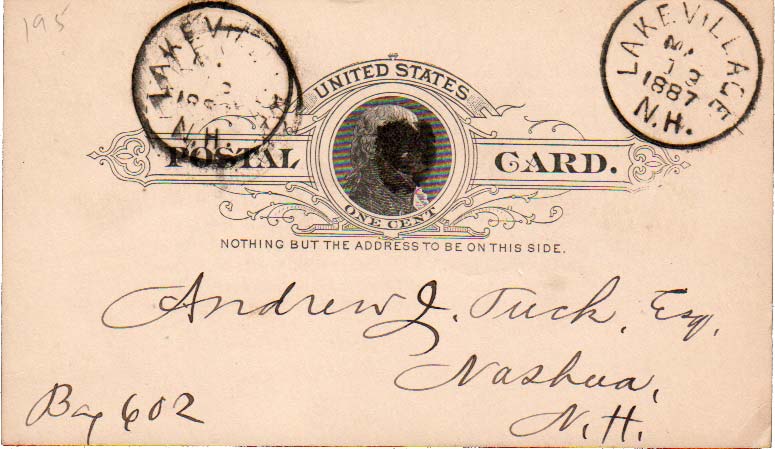 195
LAKE VILLAGE
1887
N.H.
LAKE VILLAGE
12
1887
N.H.
UNITED STATES
POSTAL CARD.
ONE CENT
NOTHING BUT THE ADDRESS TO BE ON THIS SIDE.
Andrew J. Tuck, Esq,
Nashua,
Box 602
N.H.